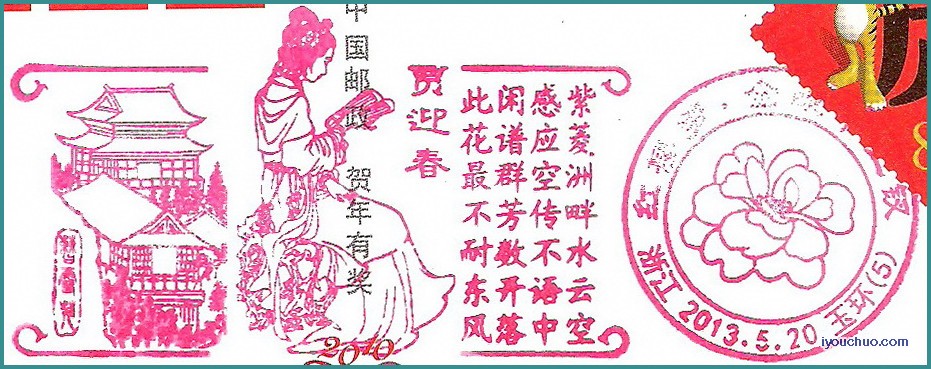 中国邮政 贺年有奖
贾迎春
紫菱洲畔水云空
感应空传不语中
闲谱群芳数开落
此花最不耐东风
浙江 2013.5.20 玉环(5)
2010
iyouchuo.com